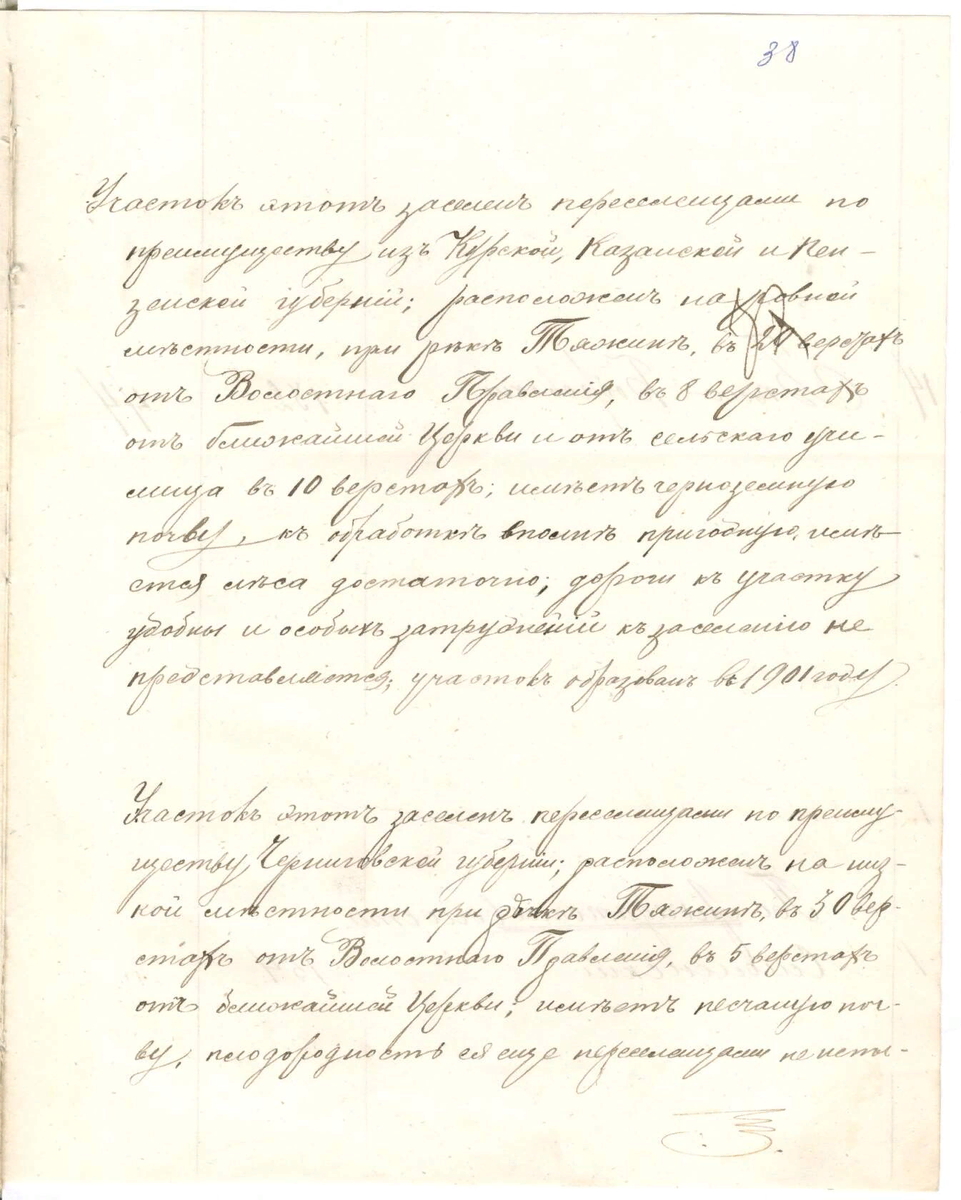 38
Участокъ этотъ заселенъ переселенцами по
преимуществу изъ Курской, Казанской и Пен-
зенской губерній; расположенъ на ровной
мѣстности, при рѣкѣ Тяжинѣ, въ верстахъ
отъ Волостнаго Правленія, въ 8 верстахъ
отъ ближайшей Церкви и отъ сельскаго учи-
лища въ 10 верстахъ; имѣетъ черноземную
почву, къ обработкѣ вполнѣ пригодную, имѣ-
ется лѣса достаточно; дороги къ участку
удобны и особыхъ затрудненій къ заселенію не
представляется; участокъ образованъ въ 1901 году.
Участокъ этотъ заселенъ переселенцами по преиму-
ществу Черниговской губерніи; расположенъ на низ-
кой мѣстности при рѣкѣ Тяжинѣ, въ 30 вер-
стахъ отъ Волостнаго Правленія, въ 5 верстахъ
отъ ближайшей Церкви; имѣетъ песчаную поч-
ву, плодородность ея еще переселенцами не испы-